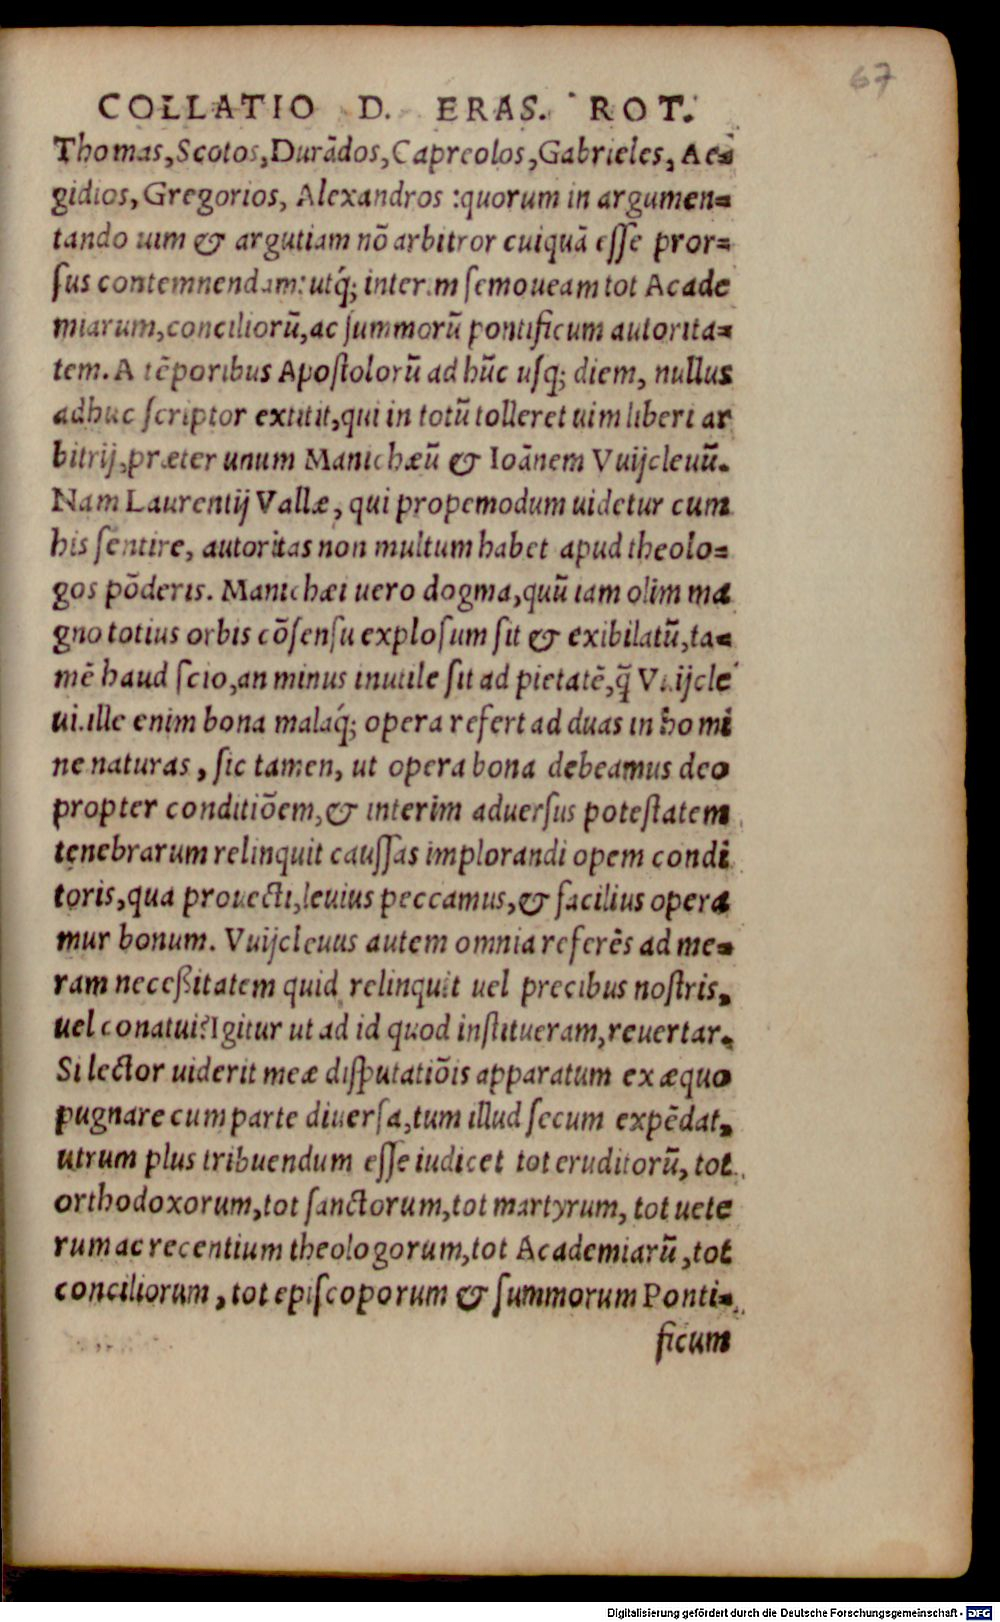 67
COLLATIO D. ERAS. ROT.
Thomas, Scotos, Durãdos, Capreolos, Gabrieles, Ae=
gidios, Gregorios, Alexandros : quorum in argumen=
tando uim & argutiam nõ arbitror cuiquã esse pror=
sus contemnendam: utq́; interim semoueam tot Acade
miarum, conciliorũ, ac summorũ pontificum autorita=
tem. A tẽporibus Apostolorũ ad hũc usq; diem, nullus
adhuc scriptor extitit, qui in totũ tolleret uim liberi ar
bitrij, præter unum Manichæũ & Ioãnem Vuijcleuũ.
Nam Laurentij Vallæ, qui propemodum uidetur cum
his sentire, autoritas non multum habet apud theolo=
gos põderis. Manichæi uero dogma, quũ iam olim ma
gno totius orbis cõsensu explosum sit & exibilatũ, ta=
mẽ haud scio, an minus inutile sit ad pietatẽ, q̃ Vuijcle
ui. ille enim bona malaq́; opera refert ad duas in homi
ne naturas, sic tamen, ut opera bona debeamus deo
propter conditiõem, & interim aduersus potestatem
tenebrarum relinquit caussas implorandi opem condi
toris, qua prouecti, leuius peccamus, & facilius opera
mur bonum. Vuijcleuus autem omnia referẽs ad me=
ram neceßitatem quid relinquit uel precibus nostris,
uel conatui? Igitur ut ad id quod institueram, reuertar.
Si lector uiderit meæ disputatiõis apparatum ex æquo
pugnare cum parte diuersa, tum illud secum expẽdat,
utrum plus tribuendum esse iudicet tot eruditorũ, tot
orthodoxorum, tot sanctorum, tot martyrum, tot uete
rum ac recentium theologorum, tot Academiarũ, tot
conciliorum, tot episcoporum & summorum Ponti=
ficum
Digitalisierung gefördert durch die Deutsche Forschungsgemeinschaft - DFG